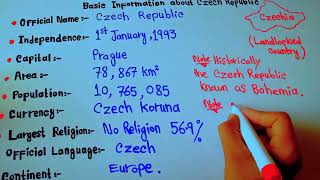 Basic Information about Czech Republic
• Official Name:- Czech Republic
• Independence:- 1st January, 1993
• Capital: Prague
• Area: 78,867 km²
• Population: 10,765,085
• Currency: Czech Koruna
• Largest Religion:- No Religion 56.9%
Official Language: Czech
Continent: Europe.
Czechia
(Landlocked
Country)
Note Historically
the Czech Republic
Known as Bohemia.
Note